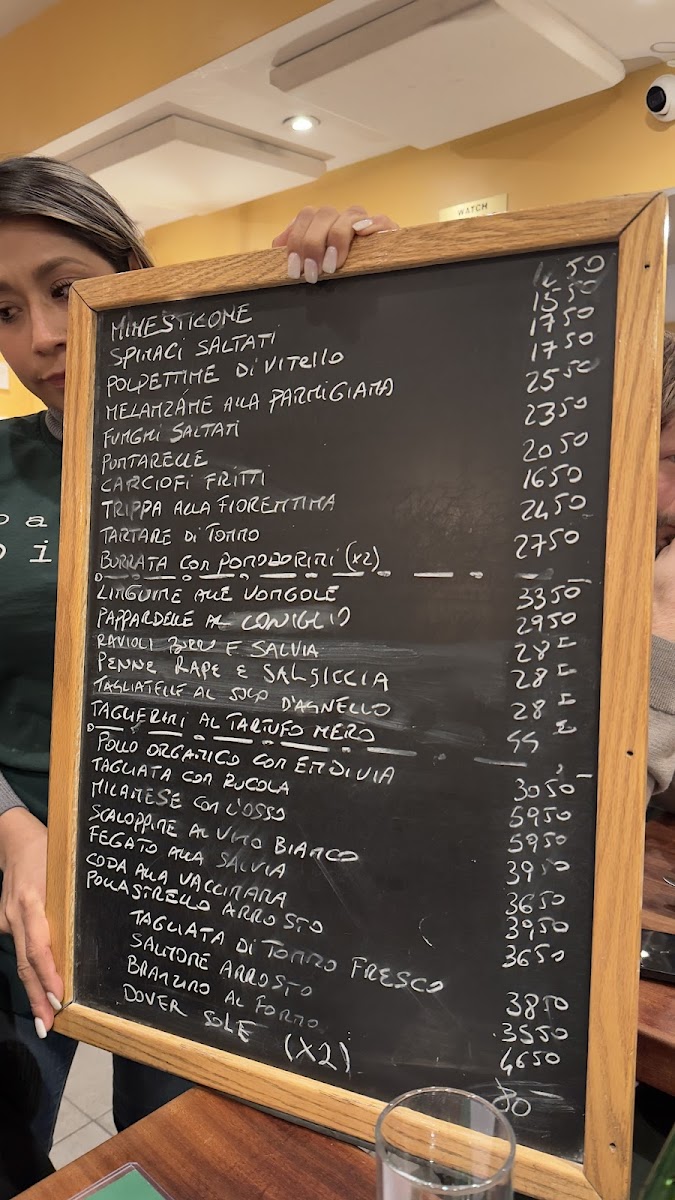 WATCH
MINESTICONE
SPINACI SALTATI 1550
POLPETTINE DI VITELLO 1750
MELANZANE ALLA PARMIGIANA 1750
FUNGHI SALTATI 2550
PUNTARELLE 2350
CARCIOFI FRITTI 2050
TRIPPA ALLA FIORENTINA 1650
TARTARE DI TONNO 2450
BURRATA CON POMODORINI (X2) 2750
LINGUINE ALLE VONGOLE 3350
PAPPARDELLE AL CONIGLIO 2950
RAVIOLI BURRO E SALVIA 28
PENNE RAPE E SALSICCIA 28
TAGLIATELLE AL SUGO D'AGNELLO 28
TAGLIERINI AL TARTUFO NERO 55
POLLO ORGANICO CON ENDIVIA 3050
TAGLIATA CON RUCOLA 5950
MILANESE CON L'OSSO 5950
SCALOPPINE AL VINO BIANCO 3950
FEGATO ALLA SALVIA 3650
CODA ALLA VACCINARA 3950
POLLASTRELLO ARROSTO 3650
TAGLIATA DI TONNO FRESCO 3850
SALMONE ARROSTO 3550
BRANZINO AL FORNO 4650
DOVER SOLE (X2) 80